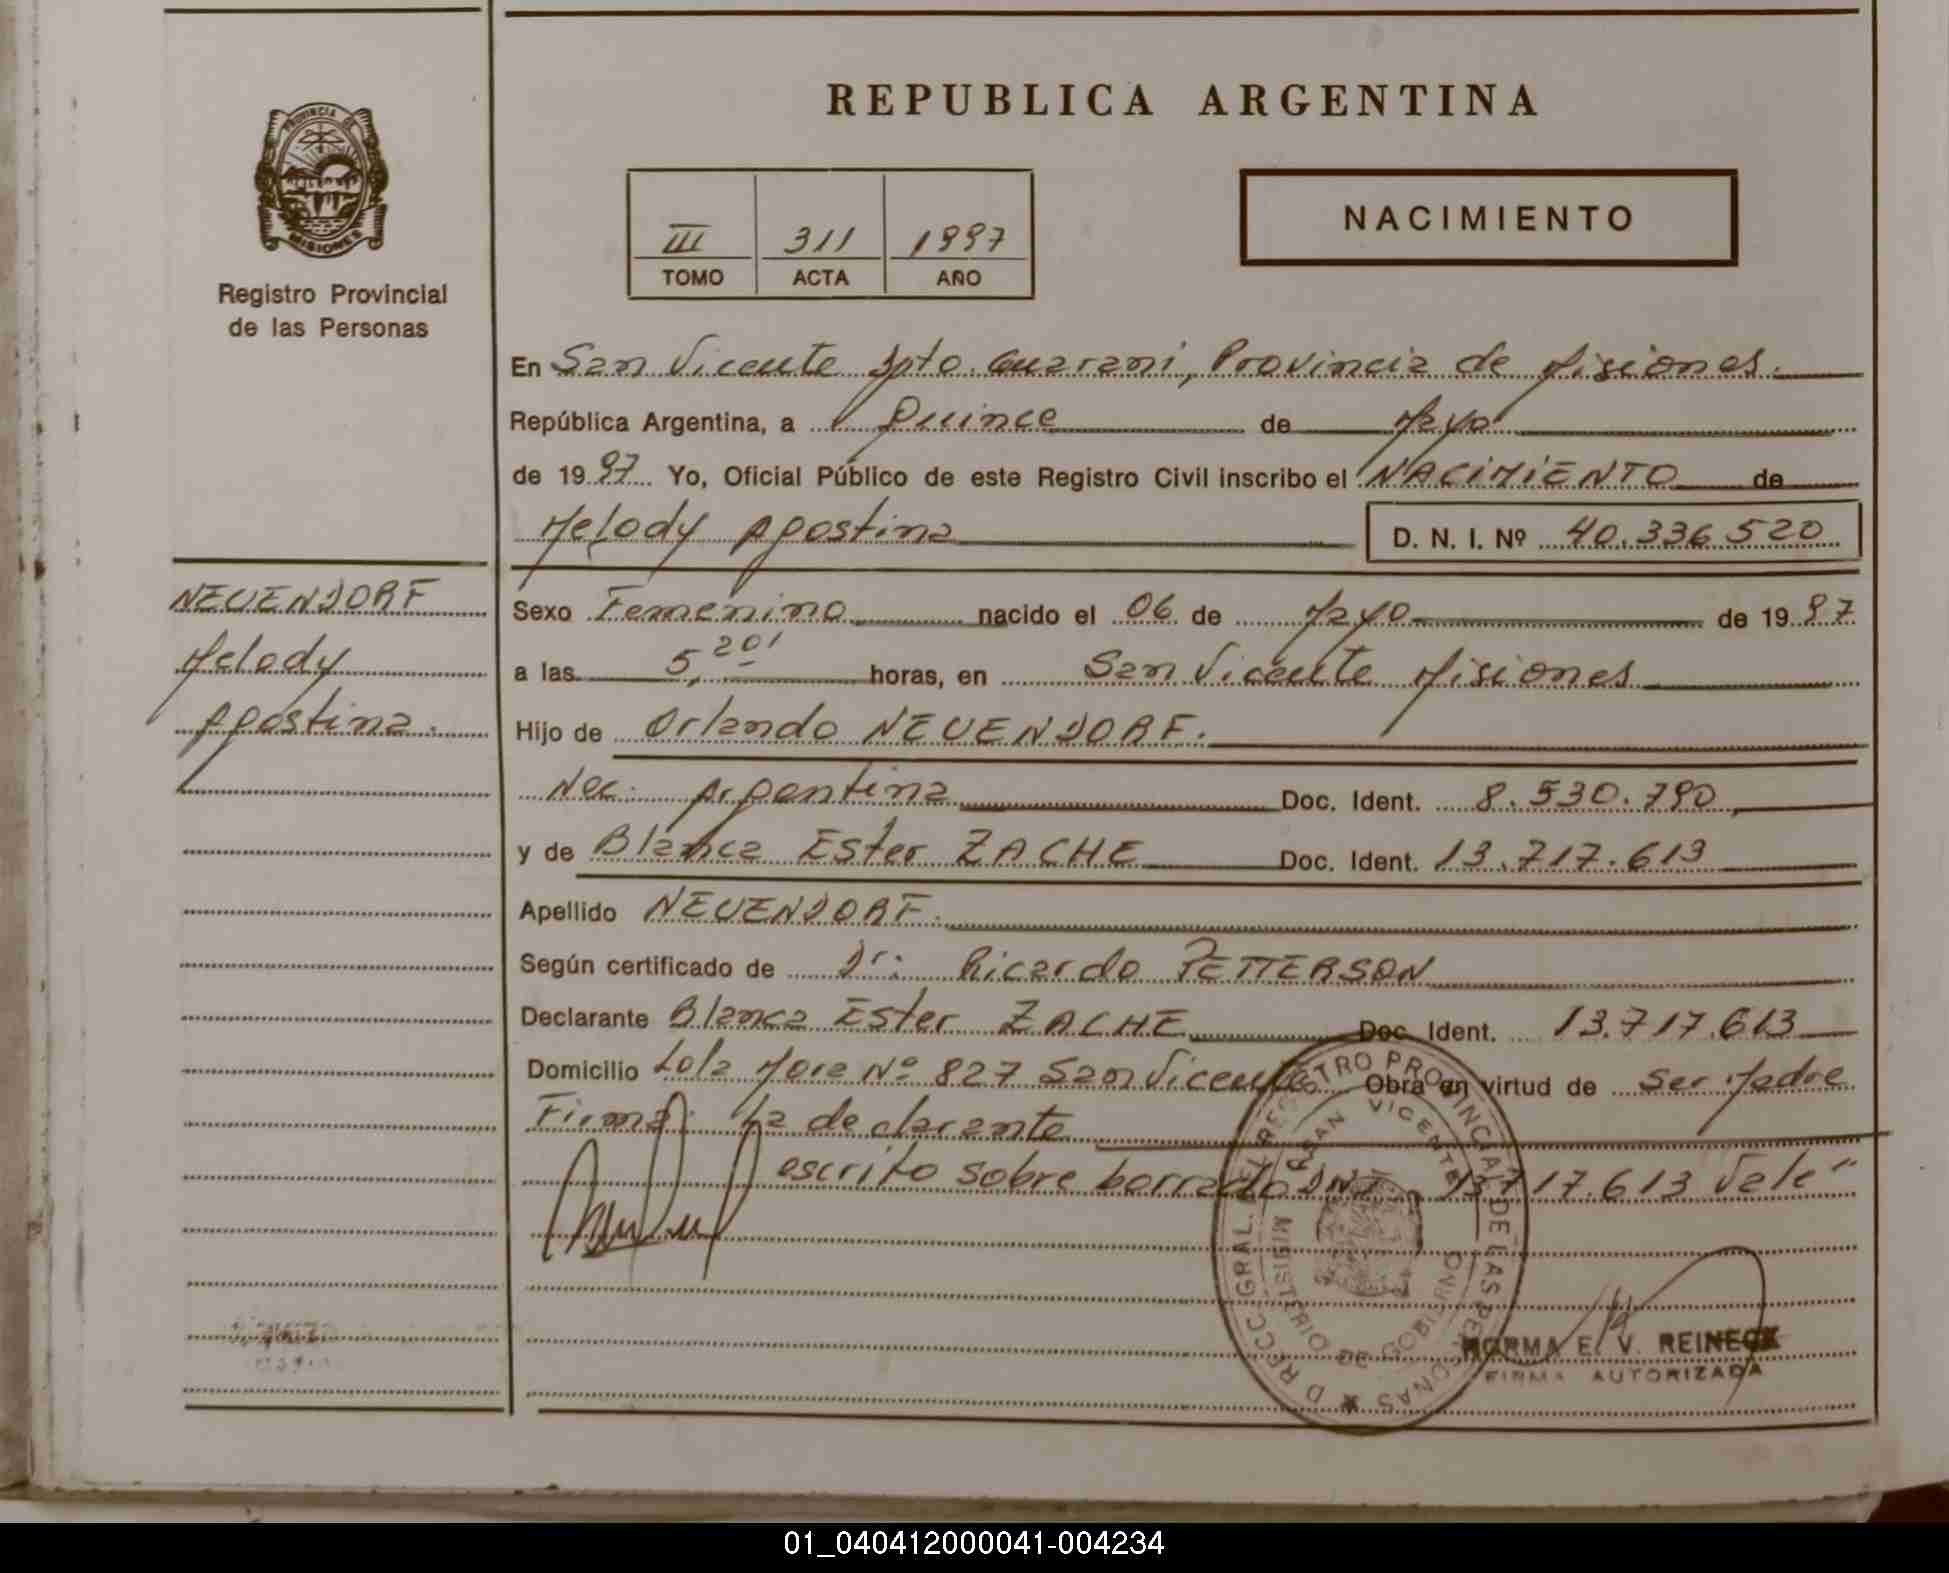 REPUBLICA ARGENTINA
PROVINCIA DE
MISIONES
Registro Provincial
de las Personas
III 311 1997
TOMO ACTA AÑO
NACIMIENTO
En San Vicente Dpto. Guarani, Provincia de Misiones.
República Argentina, a Quince de Mayo
de 1997 Yo, Oficial Público de este Registro Civil inscribo el NACIMIENTO de
Melody Agostina D. N. I. Nº 40.336.520
NEUENDORF
Melody
Agostina.
Sexo Femenino nacido el 06 de Mayo de 1997
a las 5,20' horas, en San Vicente Misiones
Hijo de Orlando NEUENDORF.
Nac. Argentina Doc. Ident. 8.530.790
y de Blanca Ester ZACHE Doc. Ident. 13.717.613
Apellido NEUENDORF.
Según certificado de Dr: Ricardo PETTERSON
Declarante Blanca Ester ZACHE Doc. Ident. 13.717.613
Domicilio Lola Mora Nº 827 San Vicente Obra en virtud de ser Madre
Firma: La declarante
escrito sobre borrado DNI 13.717.613 Vale"
DIRECC. GRAL. DEL REGISTRO PROVINCIAL DE LAS PERSONAS
SAN VICENTE
MINISTERIO DE GOBIERNO
NORMA E. V. REINECK
FIRMA AUTORIZADA
01_040412000041-004234